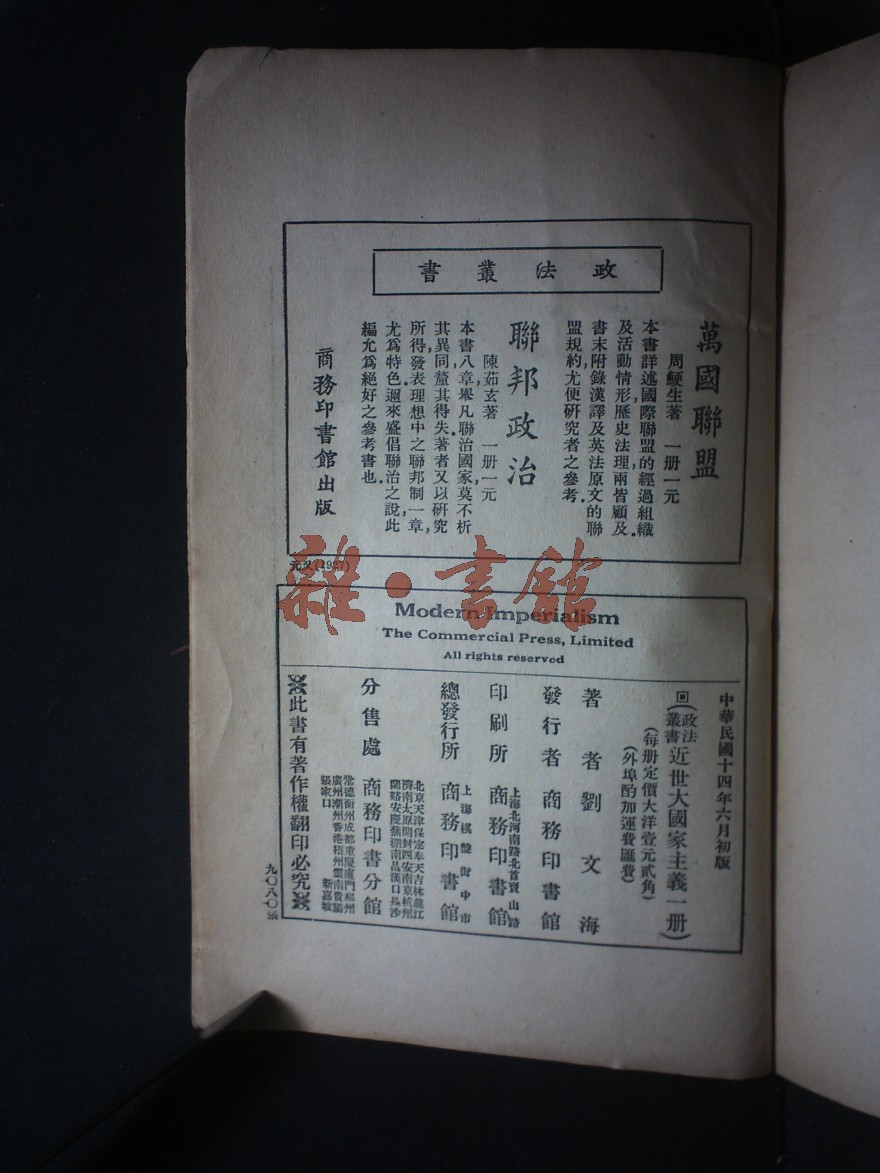 政法叢書
萬國聯盟
周鯁生著 一册一元
本書詳述國際聯盟的經過組織
及活動情形歷史法理兩皆顧及.
書末附錄漢譯及英法原文的聯
盟規約尤便研究者之參考.
聯邦政治
陳茹玄著 一册一元
本書八章舉凡聯治國家莫不析
其異同,釐其得失.著者又以研究
所得發表理想中之聯邦制一章,
尤爲特色.邇來盛倡聯治之說,此
編允爲絕好之參考書也.
商務印書館出版
元又(1927)
雜·書館
Modern Imperialism
The Commercial Press, Limited
All rights reserved
中華民國十四年六月初版
(政法叢書)近世大國家主義一册)
(每册定價大洋壹元貳角)
(外埠酌加運費匯費)
著者 劉文海
發行者 商務印書館
印刷所 上海北河南路北首寶山路 商務印書館
總發行所 上海棋盤街中市 商務印書館
分售處 商務印書分館
北京天津保定奉天吉林龍江
濟南太原開封西安南京杭州
蘭谿安慶蕪湖南昌漢口長沙
常德衡州成都重慶廈門福州
廣州潮州香港梧州雲南貴陽
張家口 新嘉坡
此書有著作權翻印必究
九〇八〇張